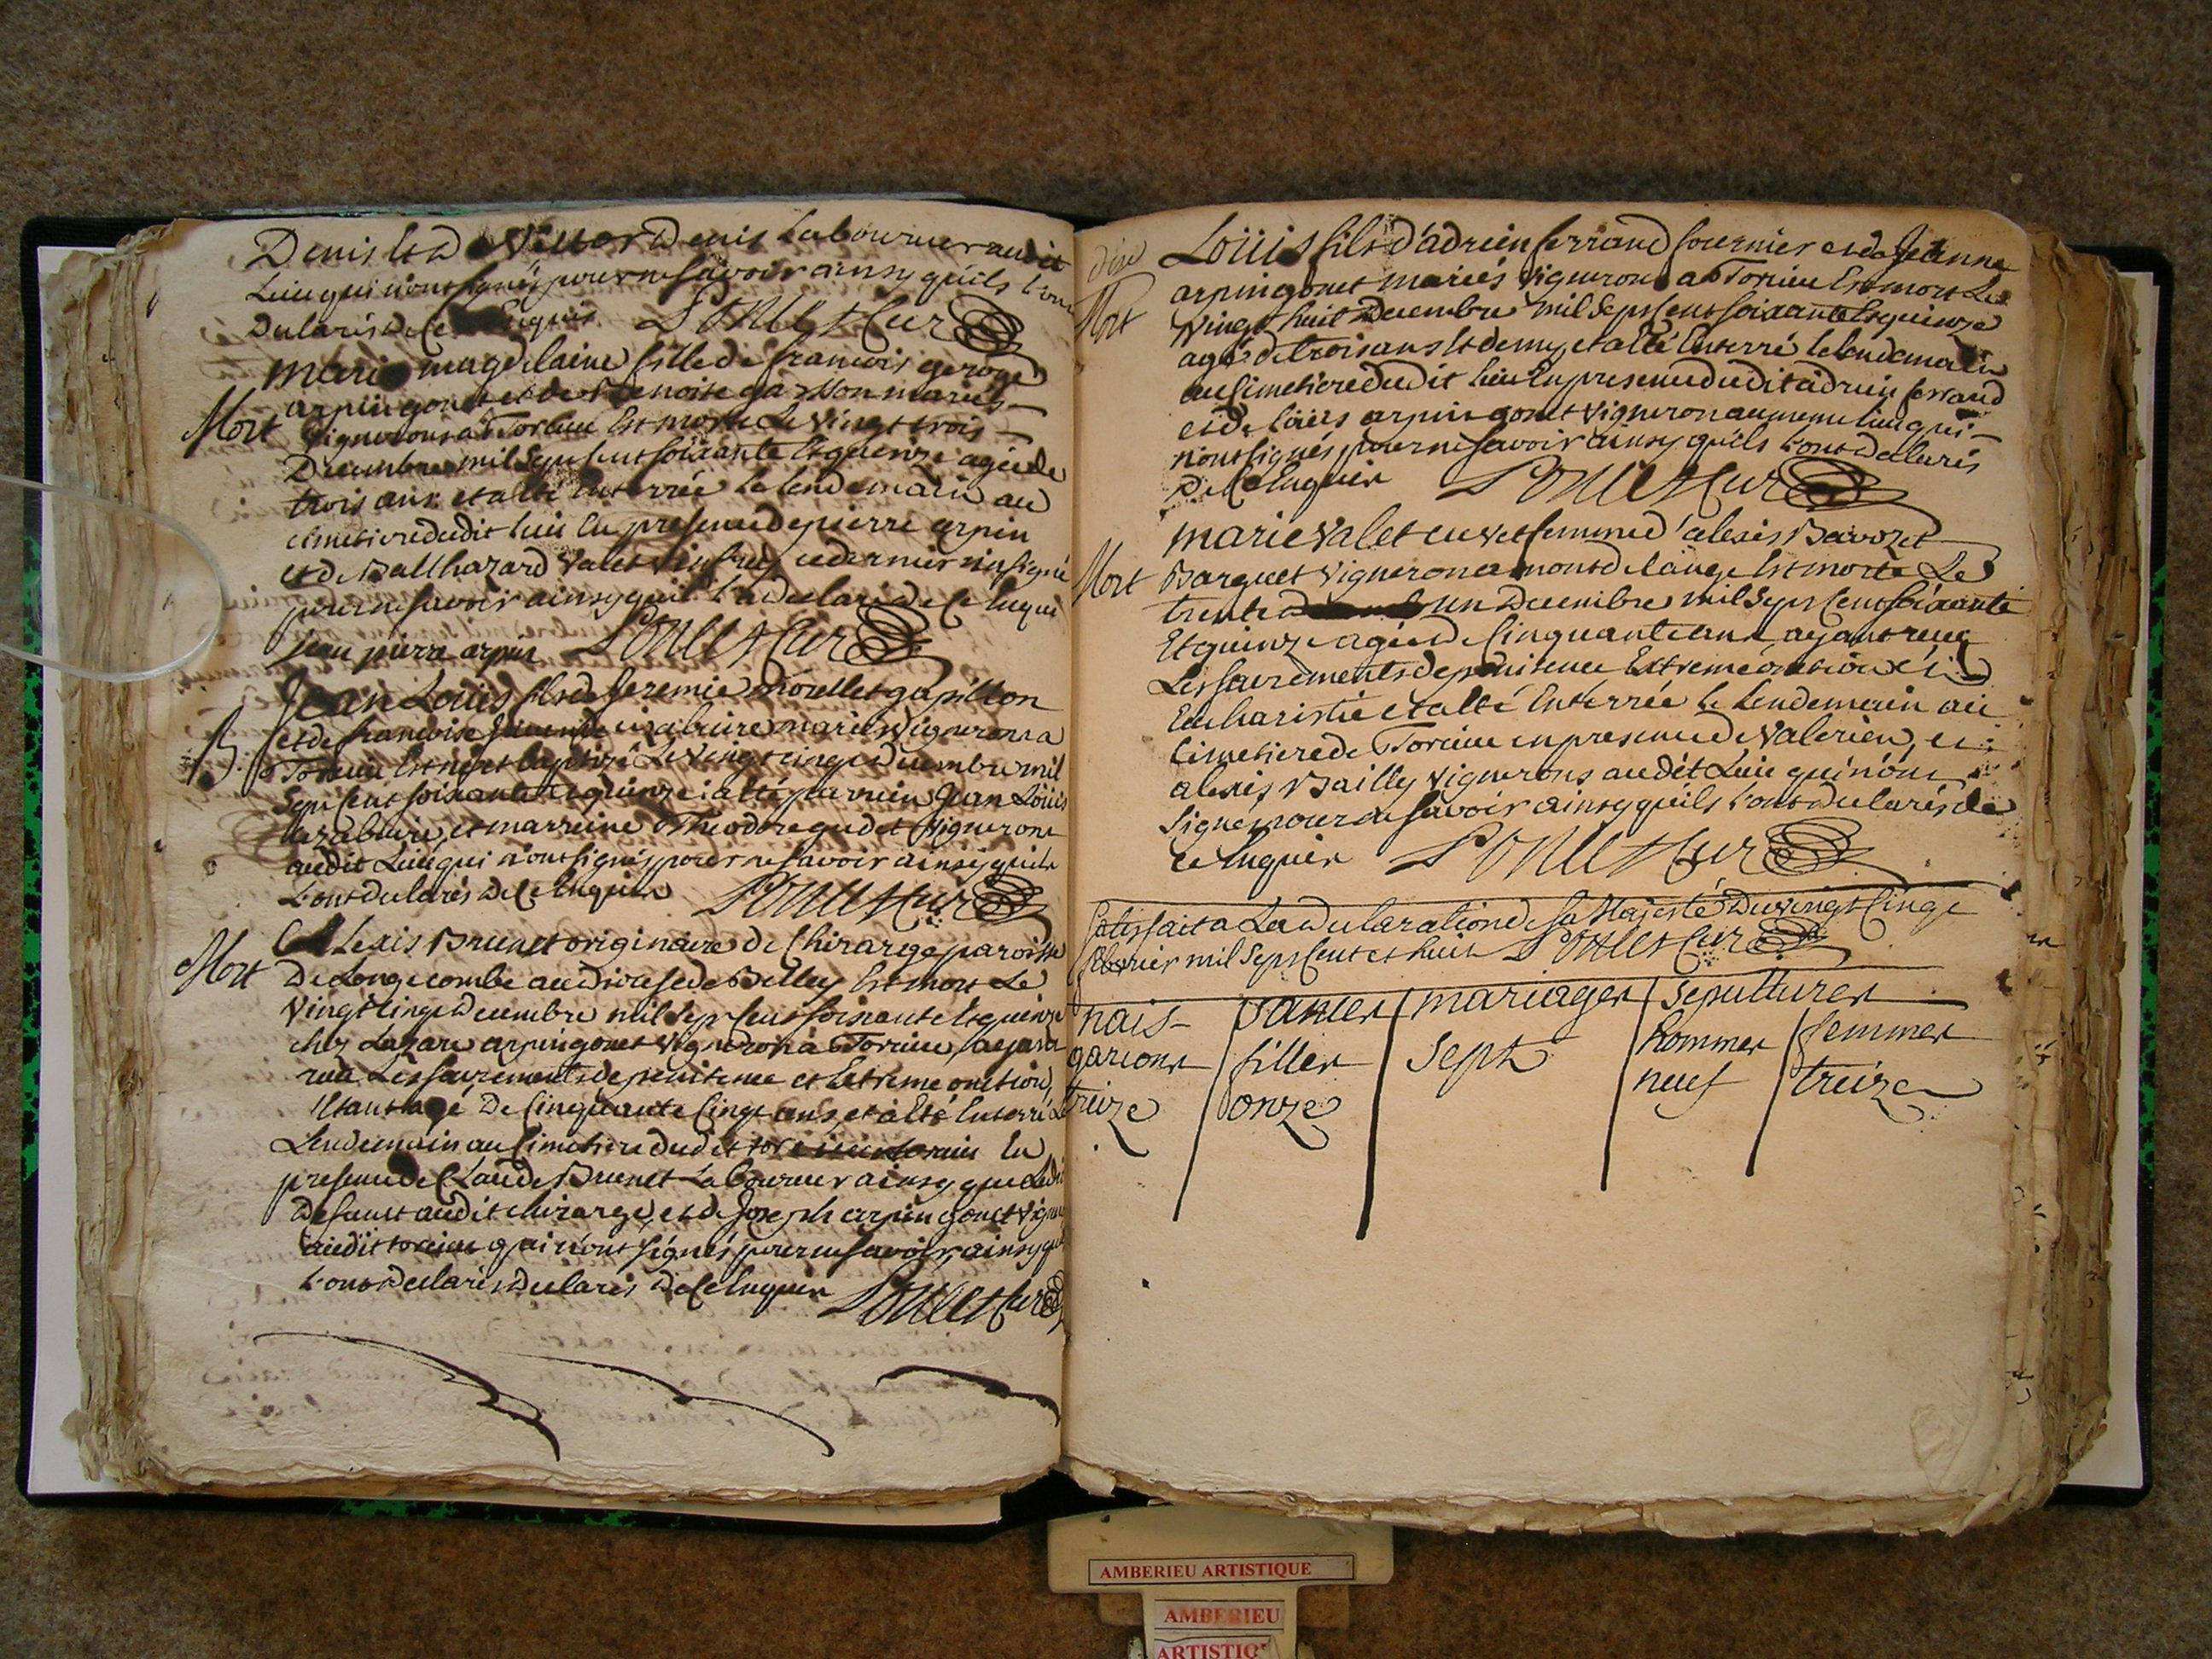 Denis et De Victor Denis Laboureur audit
Lieu qui n'ont signés pour ne savoir ainsy qu'ils l'ont
Declarés De Ce Enquis
Marie magdelaine fille de francois gerome
arpin gonet et de Benoite garlon mariés
Mort
vignerons a Torcieu Est morte Le Vingt trois
Decembre mil Sept Cent soixante Et quinze agée de
trois ans et a été Enterrée le lendemain au
cimetiere dudit lieu En presence de pierre arpin
et de Balthazard Valet ce dernier n'a signé
pour ne savoir ainsy qu'il l'a Declaré de Ce Enquis
jean pierre arpin
Jean Louis fils de Jeremie gapillon
B.
et de francoise mariés vignerons a
Torcieu Est né et baptizé Le Vingt cinq Decembre mil
Sept Cent soixante Et quinze a été parrein Jean Louis
et marreine Theodore gudet Vignerons
audit Lieu qui n'ont signés pour ne savoir ainsy qu'ils
L'ont declarés De Ce Enquis
Alexis Brunet originaire de Chirarge paroisse
Mort
De Longecombe au Diocese de Belley Est mort Le
Vingt Cinq Decembre mil Sept Cent soixante Et quinze
chez Lazare arpin gonet Vigneron à Torcieu ayant
recu Les sacrements de penitence et Extreme onction,
Etant agé De Cinquante Cinq ans, et a été Enterré Le
Lendemain au Cimetiere dudit torcieu En
presence de Claude Brunet Laboureur ainsy que Ledit
Defunct audit chirarge, et de Joseph arpin gonet Vigneron
audit torcieu qui n'ont signés pour ne savoir, ainsy qu'ils
L'ont declarés Declarés De Ce Enquis
Louis fils d'adrien ferrand fournier et de Jeanne
arpin gonet mariés Vignerons a Torcieu Est mort Le
Mort
Vingt huit Decembre mil Sept Cent soixante Et quinze
agé de trois ans Et demy, et a été Enterré le lendemain
au Cimetiere dudit lieu En presence dudit adrien ferrand
et de Louis arpin gonet Vigneron au meme lieu qui
n'ont signés, pour ne savoir ainsy qu'ils L'ont Declarés
De Ce Enquis
marie Valet femme d'alexis Barozet
Mort
Barquet Vigneron a mont de lange Est morte Le
trente un Decembre mil Sept Cent soixante
Et quinze agée de Cinquante ans, ayant recu
Les sacrements de penitence Extreme onction et
Eucharistie et a été Enterrée le Lendemain au
Cimetiere de Torcieu en presence de Valerien, et
alexis Bailly Vignerons audit Lieu qui n'ont
Signés, pour ne savoir ainsy qu'ils L'ont Declarés de
ce Enquis
Satisfait a La Declaration de Sa Majesté Du vingt Cinq
fevrier mil Sept Cent et huit
nais- sances mariages Sepultures
garcons filles Sept hommes femmes
treize onze neuf treize
AMBERIEU ARTISTIQUE
AMBERIEU
ARTISTIQ